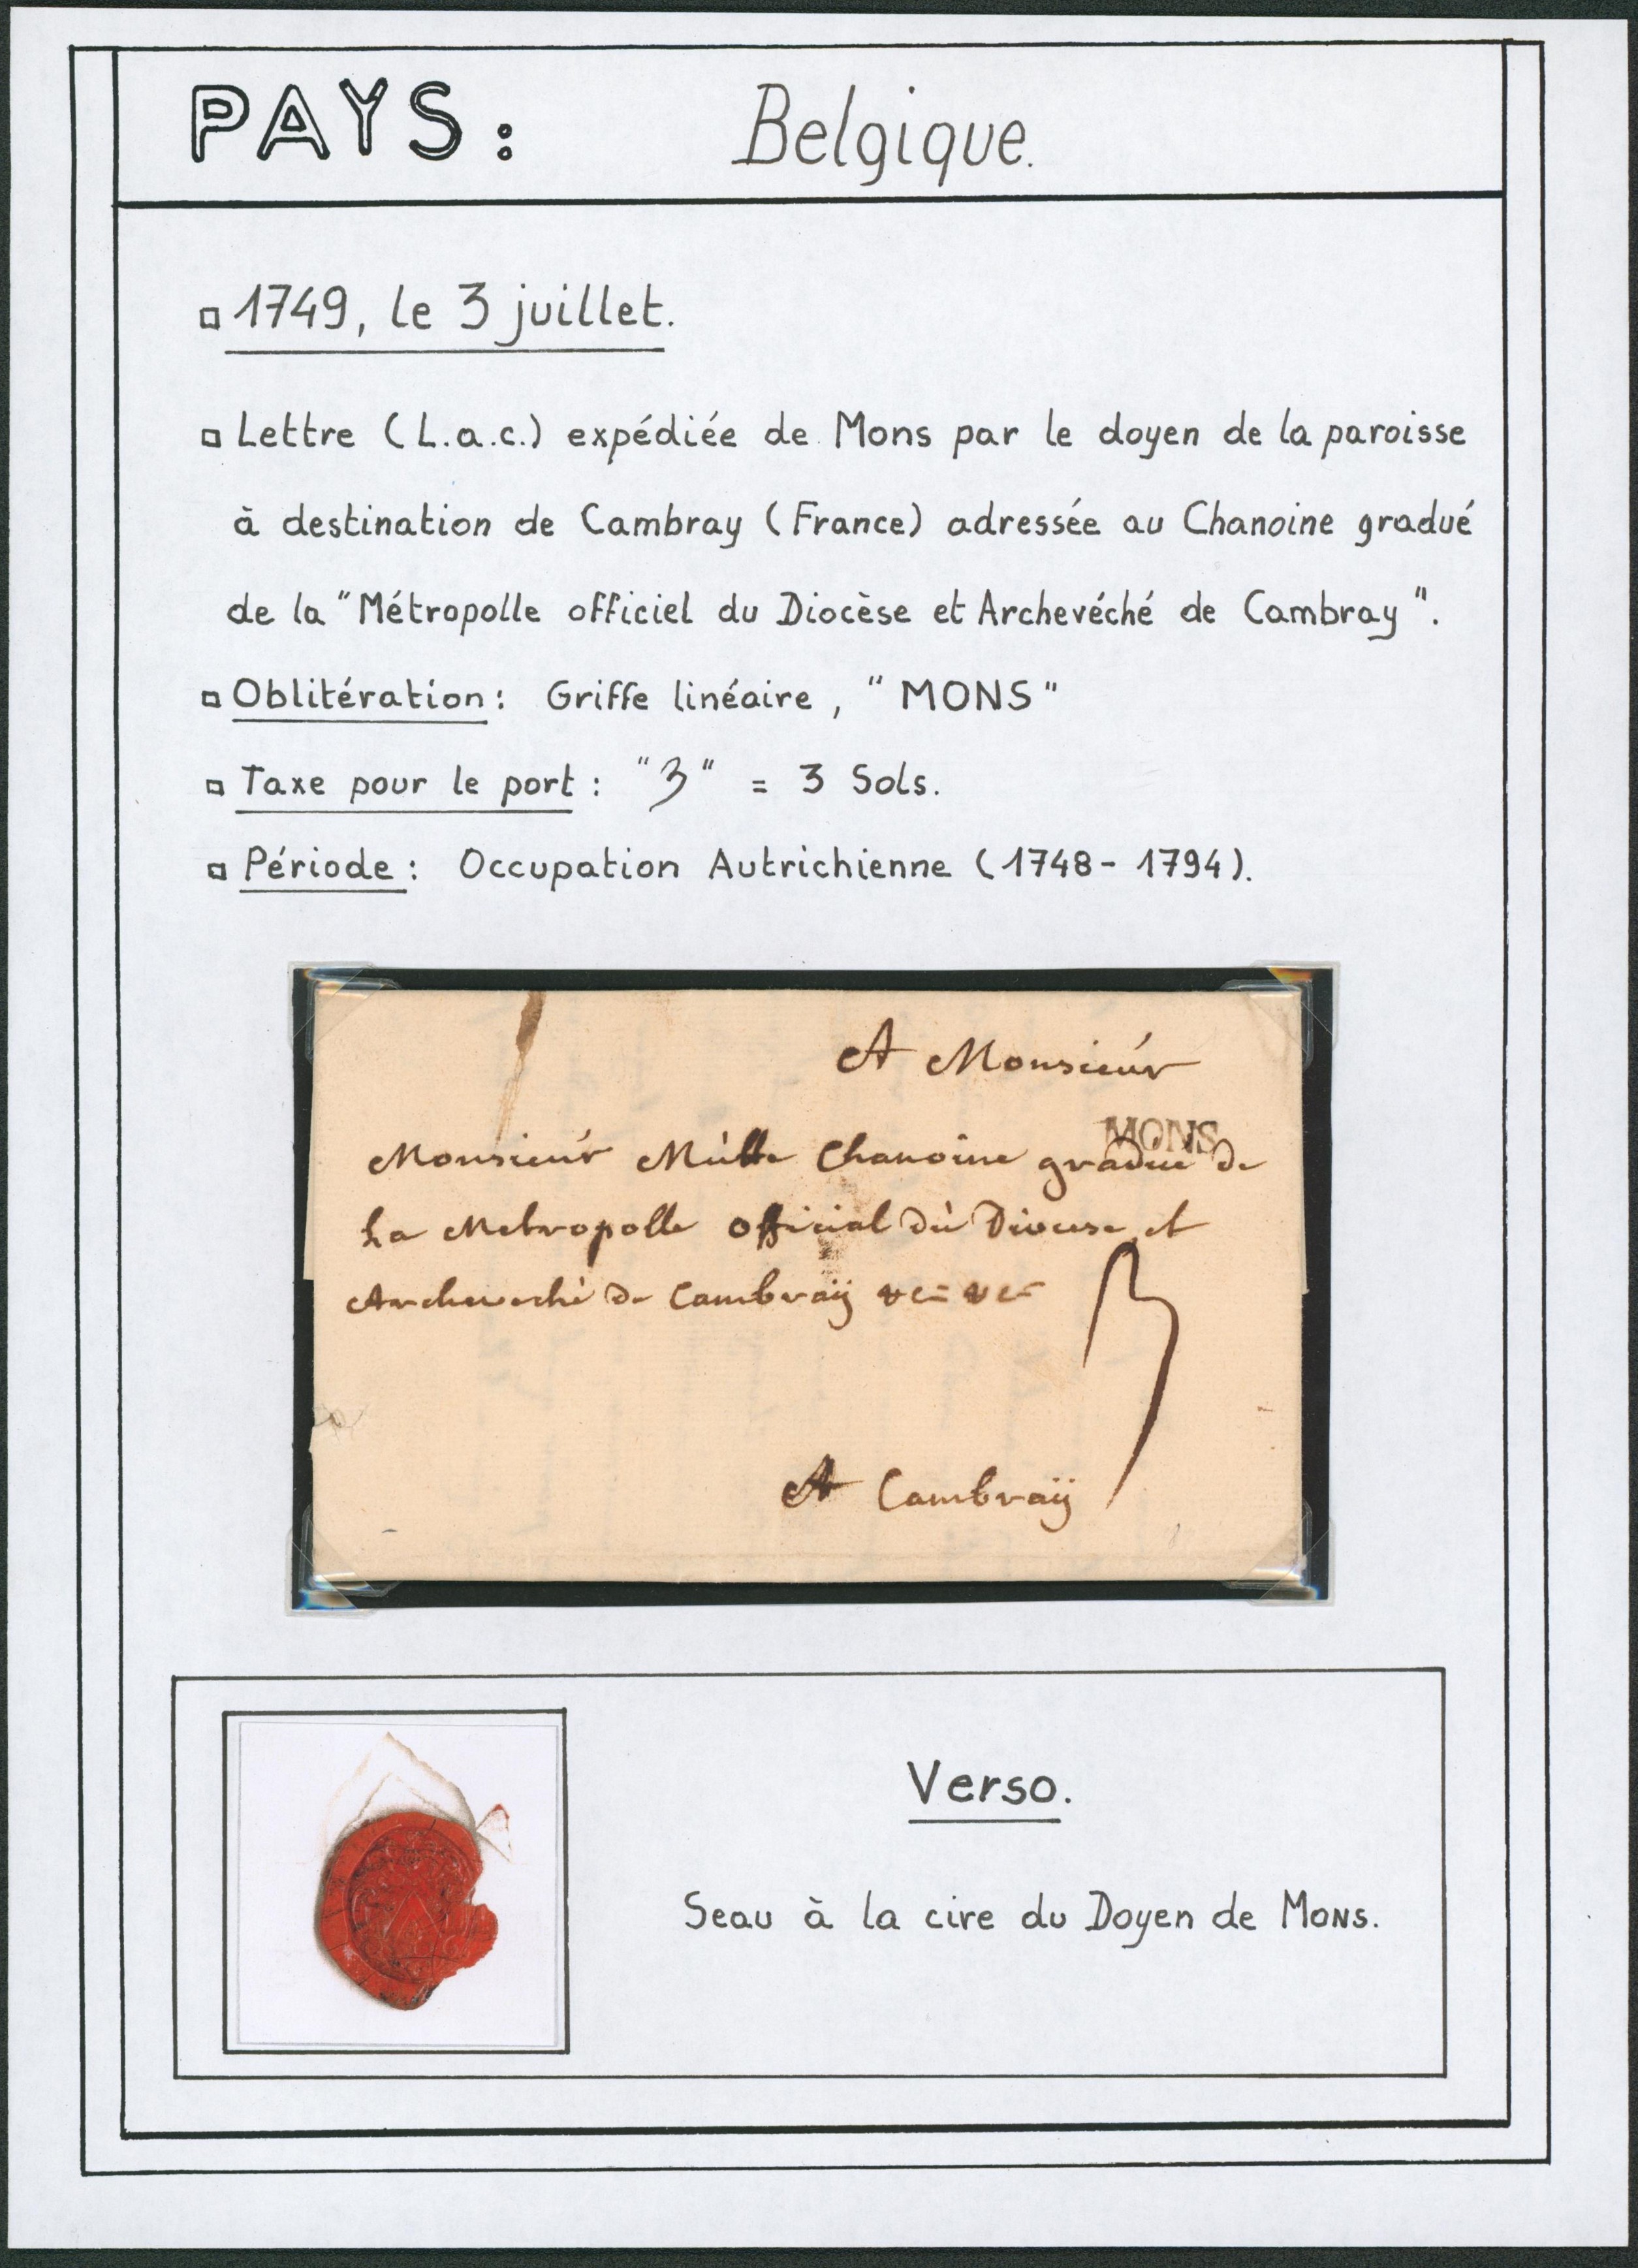 PAYS: Belgique.
1749, le 3 juillet.
Lettre (L.a.c.) expédiée de Mons par le doyen de la paroisse
à destination de Cambray (France) adressée au Chanoine gradué
de la "Métropolle officiel du Diocèse et Archevéché de Cambray".
Oblitération: Griffe linéaire, "MONS"
Taxe pour le port: "3" = 3 Sols.
Période: Occupation Autrichienne (1748-1794).
A Monsieúr
MONS
Monsieúr Chanoine gradué de
La Metropolle official dù Diocese et
Archevechè de Cambraÿ
3
A Cambraÿ
Verso.
Seau à la cire du Doyen de Mons.